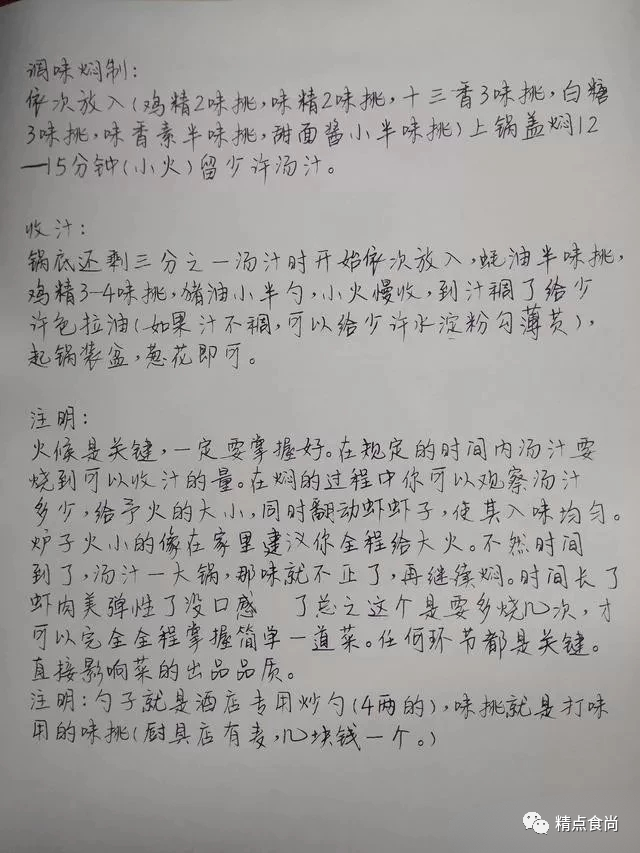 调味焖制：
依次放入(鸡精2味挑，味精2味挑，十三香3味挑，白糖
3味挑，味香素半味挑，甜面酱小半味挑)上锅盖焖12
—15分钟(小火)留少许汤汁。
收汁：
锅底还剩三分之一汤汁时开始依次放入，蚝油半味挑，
鸡精3-4味挑，猪油小半勺，小火慢收，到汁稠了给少
许色拉油(如果汁不稠，可以给少许水淀粉勾薄芡)，
起锅装盆，葱花即可。
注明：
火候是关键，一定要掌握好。在规定的时间内汤汁要
烧到可以收汁的量。在焖的过程中你可以观察汤汁
多少，给予火的大小，同时翻动虾虾子，使其入味均匀。
炉子火小的像在家里建议你全程给大火。不然时间
到了，汤汁一大锅，那味就不正了，再继续焖。时间长了
虾肉美弹性了没口感 了总之这个是要多烧几次，才
可以完全全程掌握简单一道菜。任何环节都是关键。
直接影响菜的出品品质。
注明：勺子就是酒店专用炒勺(4两的)，味挑就是打味
用的味挑(厨具店有麦，几块钱一个。)
精点食尚